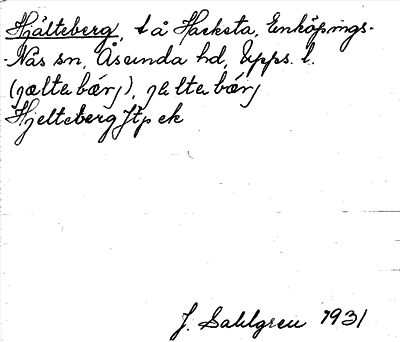 Hjälteberg, t å Hacksta, Enköpings-
Näs sn, Åsunda hd, Upps. l.
(jæltabærj), jæltabærj
Hjelteberg Jfp ek
J. Sahlgren 1931